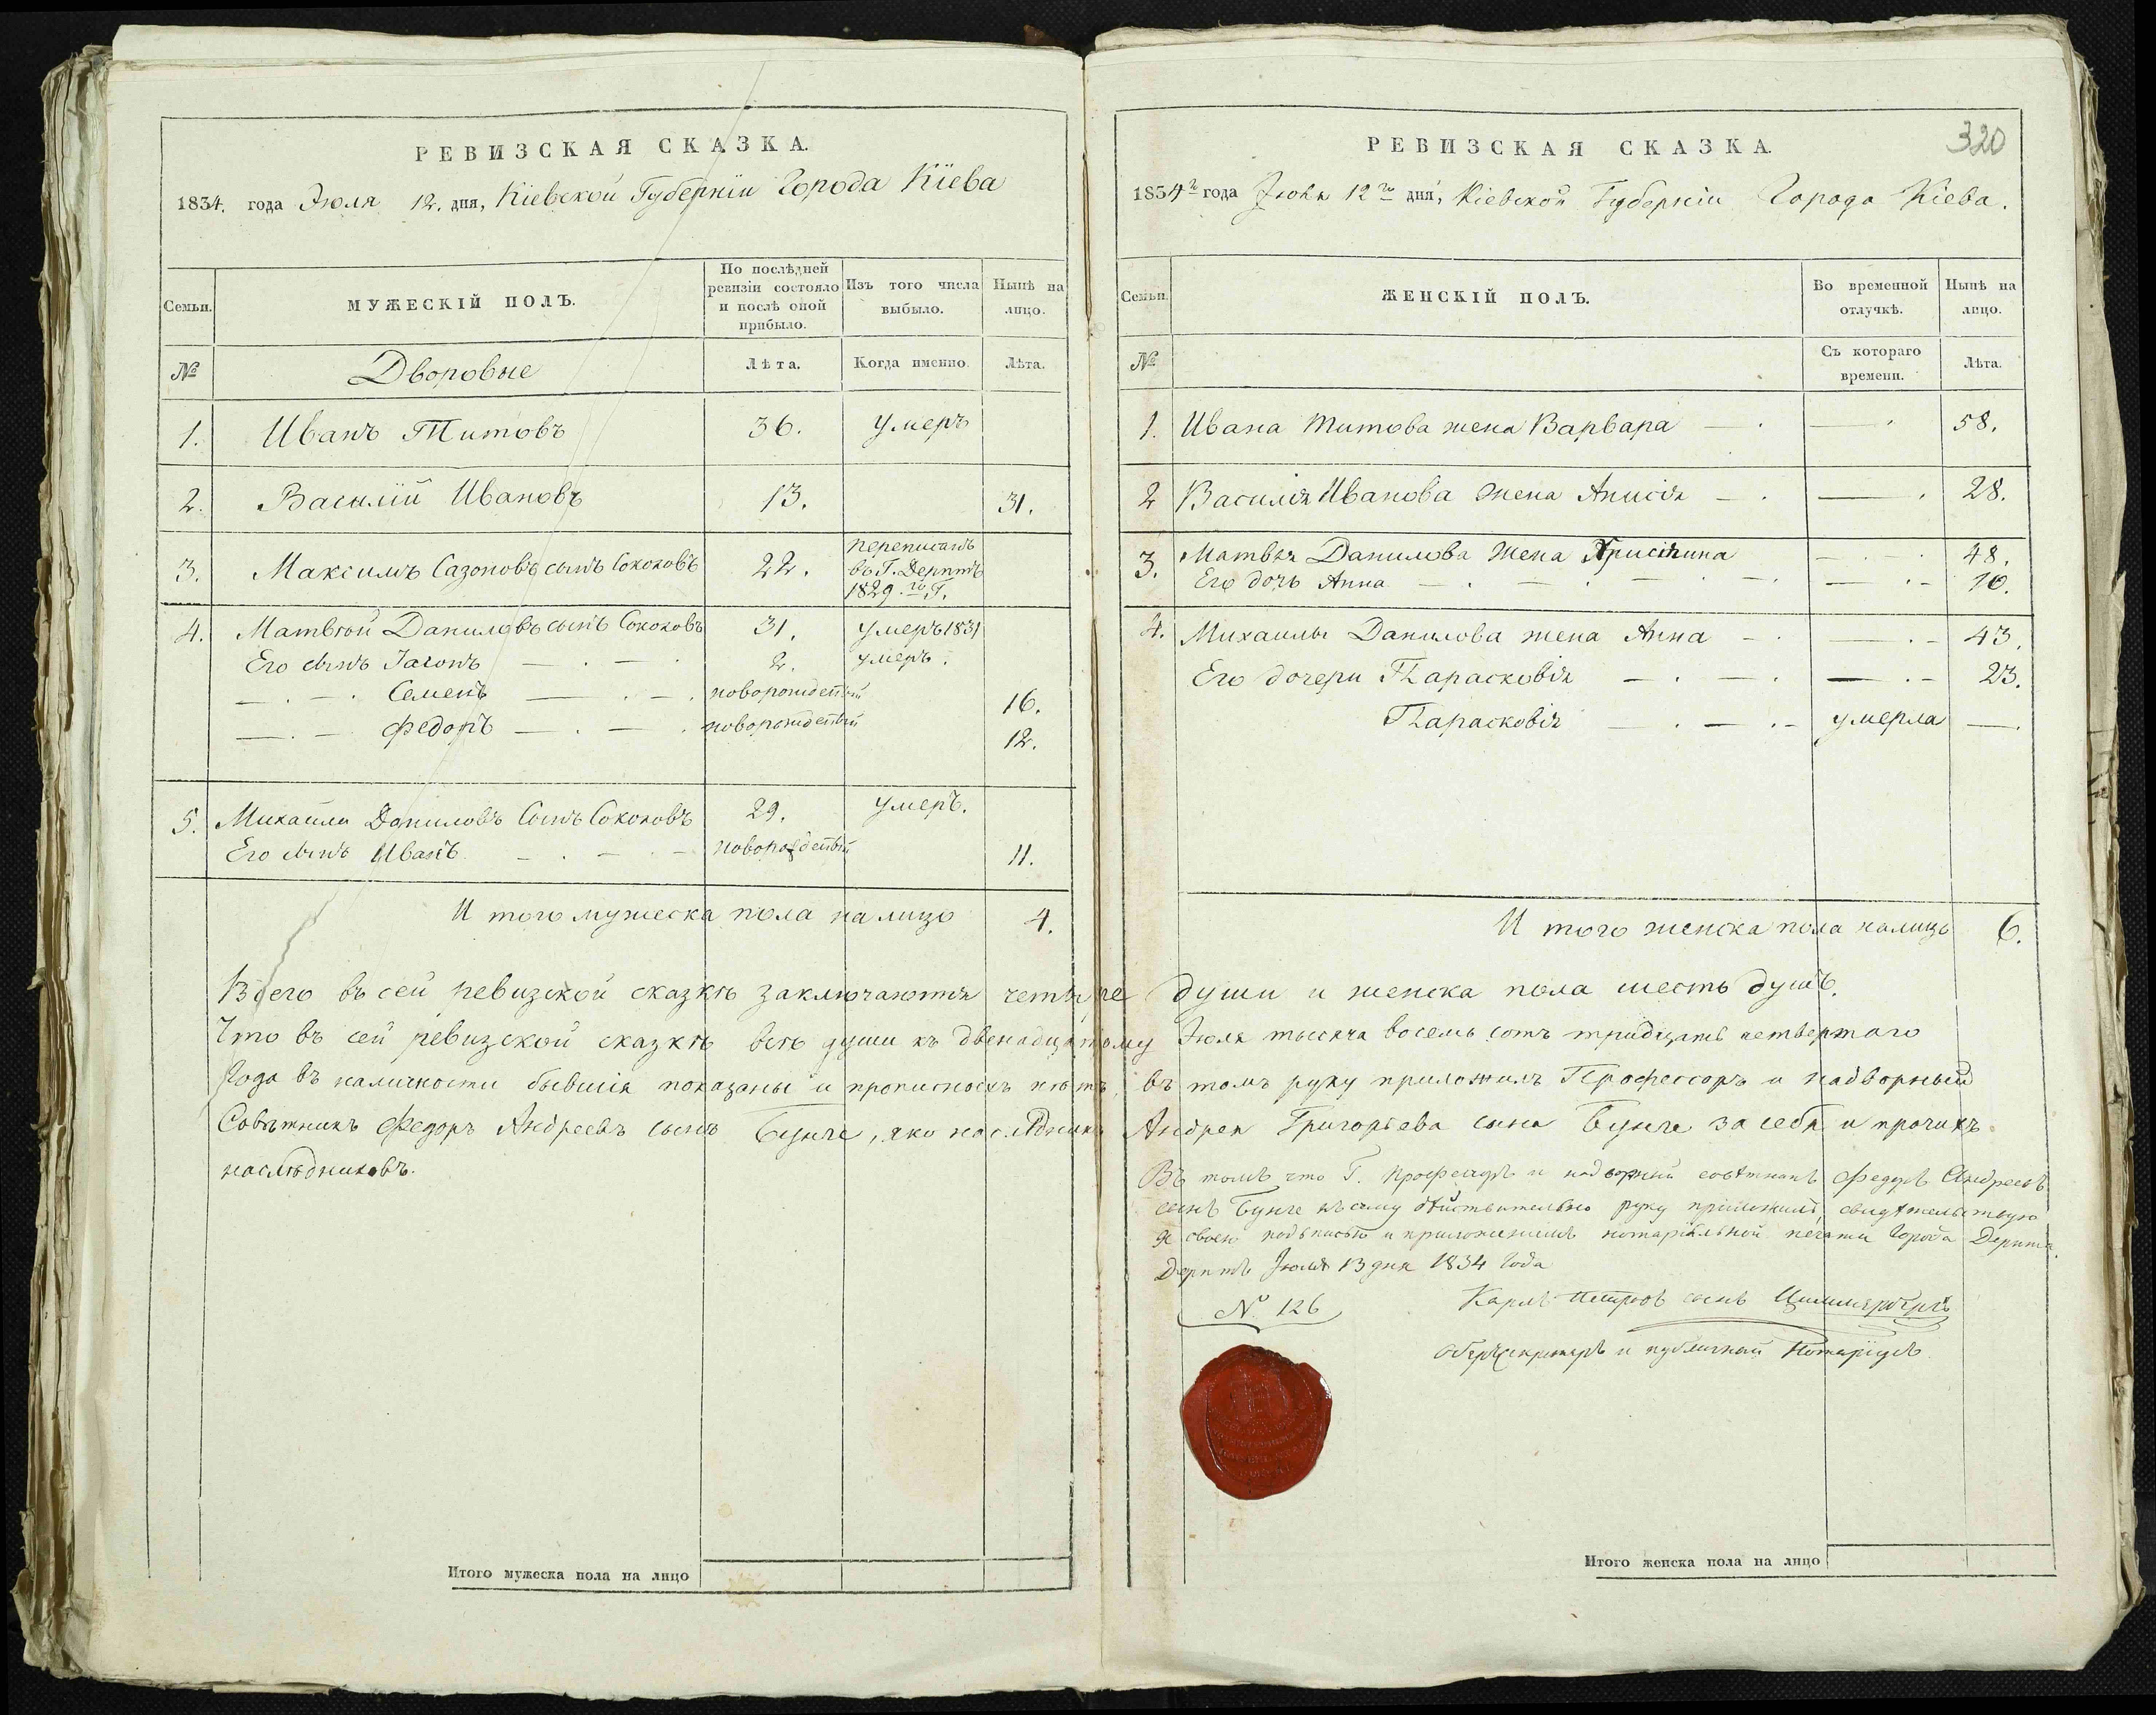 РЕВИЗСКАЯ СКАЗКА.
1834. года Июля 12. дня, Кіевской Губерніи Города Кіева
Семьи.
МУЖЕСКІЙ ПОЛЪ.
По послѣдней ревизіи состояло и послѣ оной прибыло.
Изъ того числа выбыло.
Нынѣ на лицо.
№
Дворовые
Лѣта.
Когда именно.
Лѣта.
1. Иванъ Титовъ 36. умеръ
2. Василій Ивановъ 13. 31.
3. Максимъ Сазоновъ сынъ Соколовъ 22. переписанъ въ Г. Дерптъ 1829.го Г.
4. Матвѣй Даниловъ сынъ Соколовъ 31. умеръ 1831
Его сынъ 2. умеръ.
— . — . Семенъ — . — . новорожденный 16.
— . — Федоръ — . — . новорожденный 12.
5. Михайла Даниловъ Сынъ Соколовъ 29. умеръ.
Его сынъ Иванъ — . — . — новорожденный 11.
И того мужеска пола на лицо 4.
РЕВИЗСКАЯ СКАЗКА.
320
1834го года Июля 12го дня, Кіевской Губерніи Города Кіева.
Семьи.
ЖЕНСКІЙ ПОЛЪ.
Во временной отлучкѣ.
Нынѣ на лицо.
№
Съ котораго времени.
Лѣта.
1. Ивана Титова жена Варвара — . — . 58.
2 Василія Иванова жена Анисія — . — . 28.
3. Матвѣя Данилова жена Христина — . — . 48.
Его дочь Анна — . — . — . — . — . — 10.
4. Михаилы Данилова жена Анна — . — . — 43.
Его дочери Парасковія — . — . — . — 23.
Парасковія — . — . — умерла — .
И того женска пола налицо 6.
Всего въ сей ревизской сказкѣ заключаются четыре души и женска пола шесть душъ.
Что въ сей ревизской сказкѣ всѣ души къ двенадцатому Июля тысяча восемь сотъ тридцать четвертаго
Года въ наличности бывшія показаны и прописныхъ нѣтъ, въ томъ руку приложилъ Профессоръ и надворный
Совѣтникъ Федоръ Андреевъ сынъ Бунге, яко наслѣдникъ Андрея Григорьева сына Бунге за себя и прочихъ
наслѣдниковъ.
Въ томъ что Г. Профессоръ и надворный совѣтникъ Федоръ Андреевъ
сынъ Бунге къ сему дѣйствительно руку приложилъ, свидѣтельствую
я своею подписью и приложеніемъ нотаріальной печати Города Дерпта.
Дерптъ Июля 13 дня 1834 Года
№ 126
Карлъ Петровъ сынъ
Оберсекретарь и публичный Нотаріусъ
Итого мужеска пола на лицо
Итого женска пола на лицо